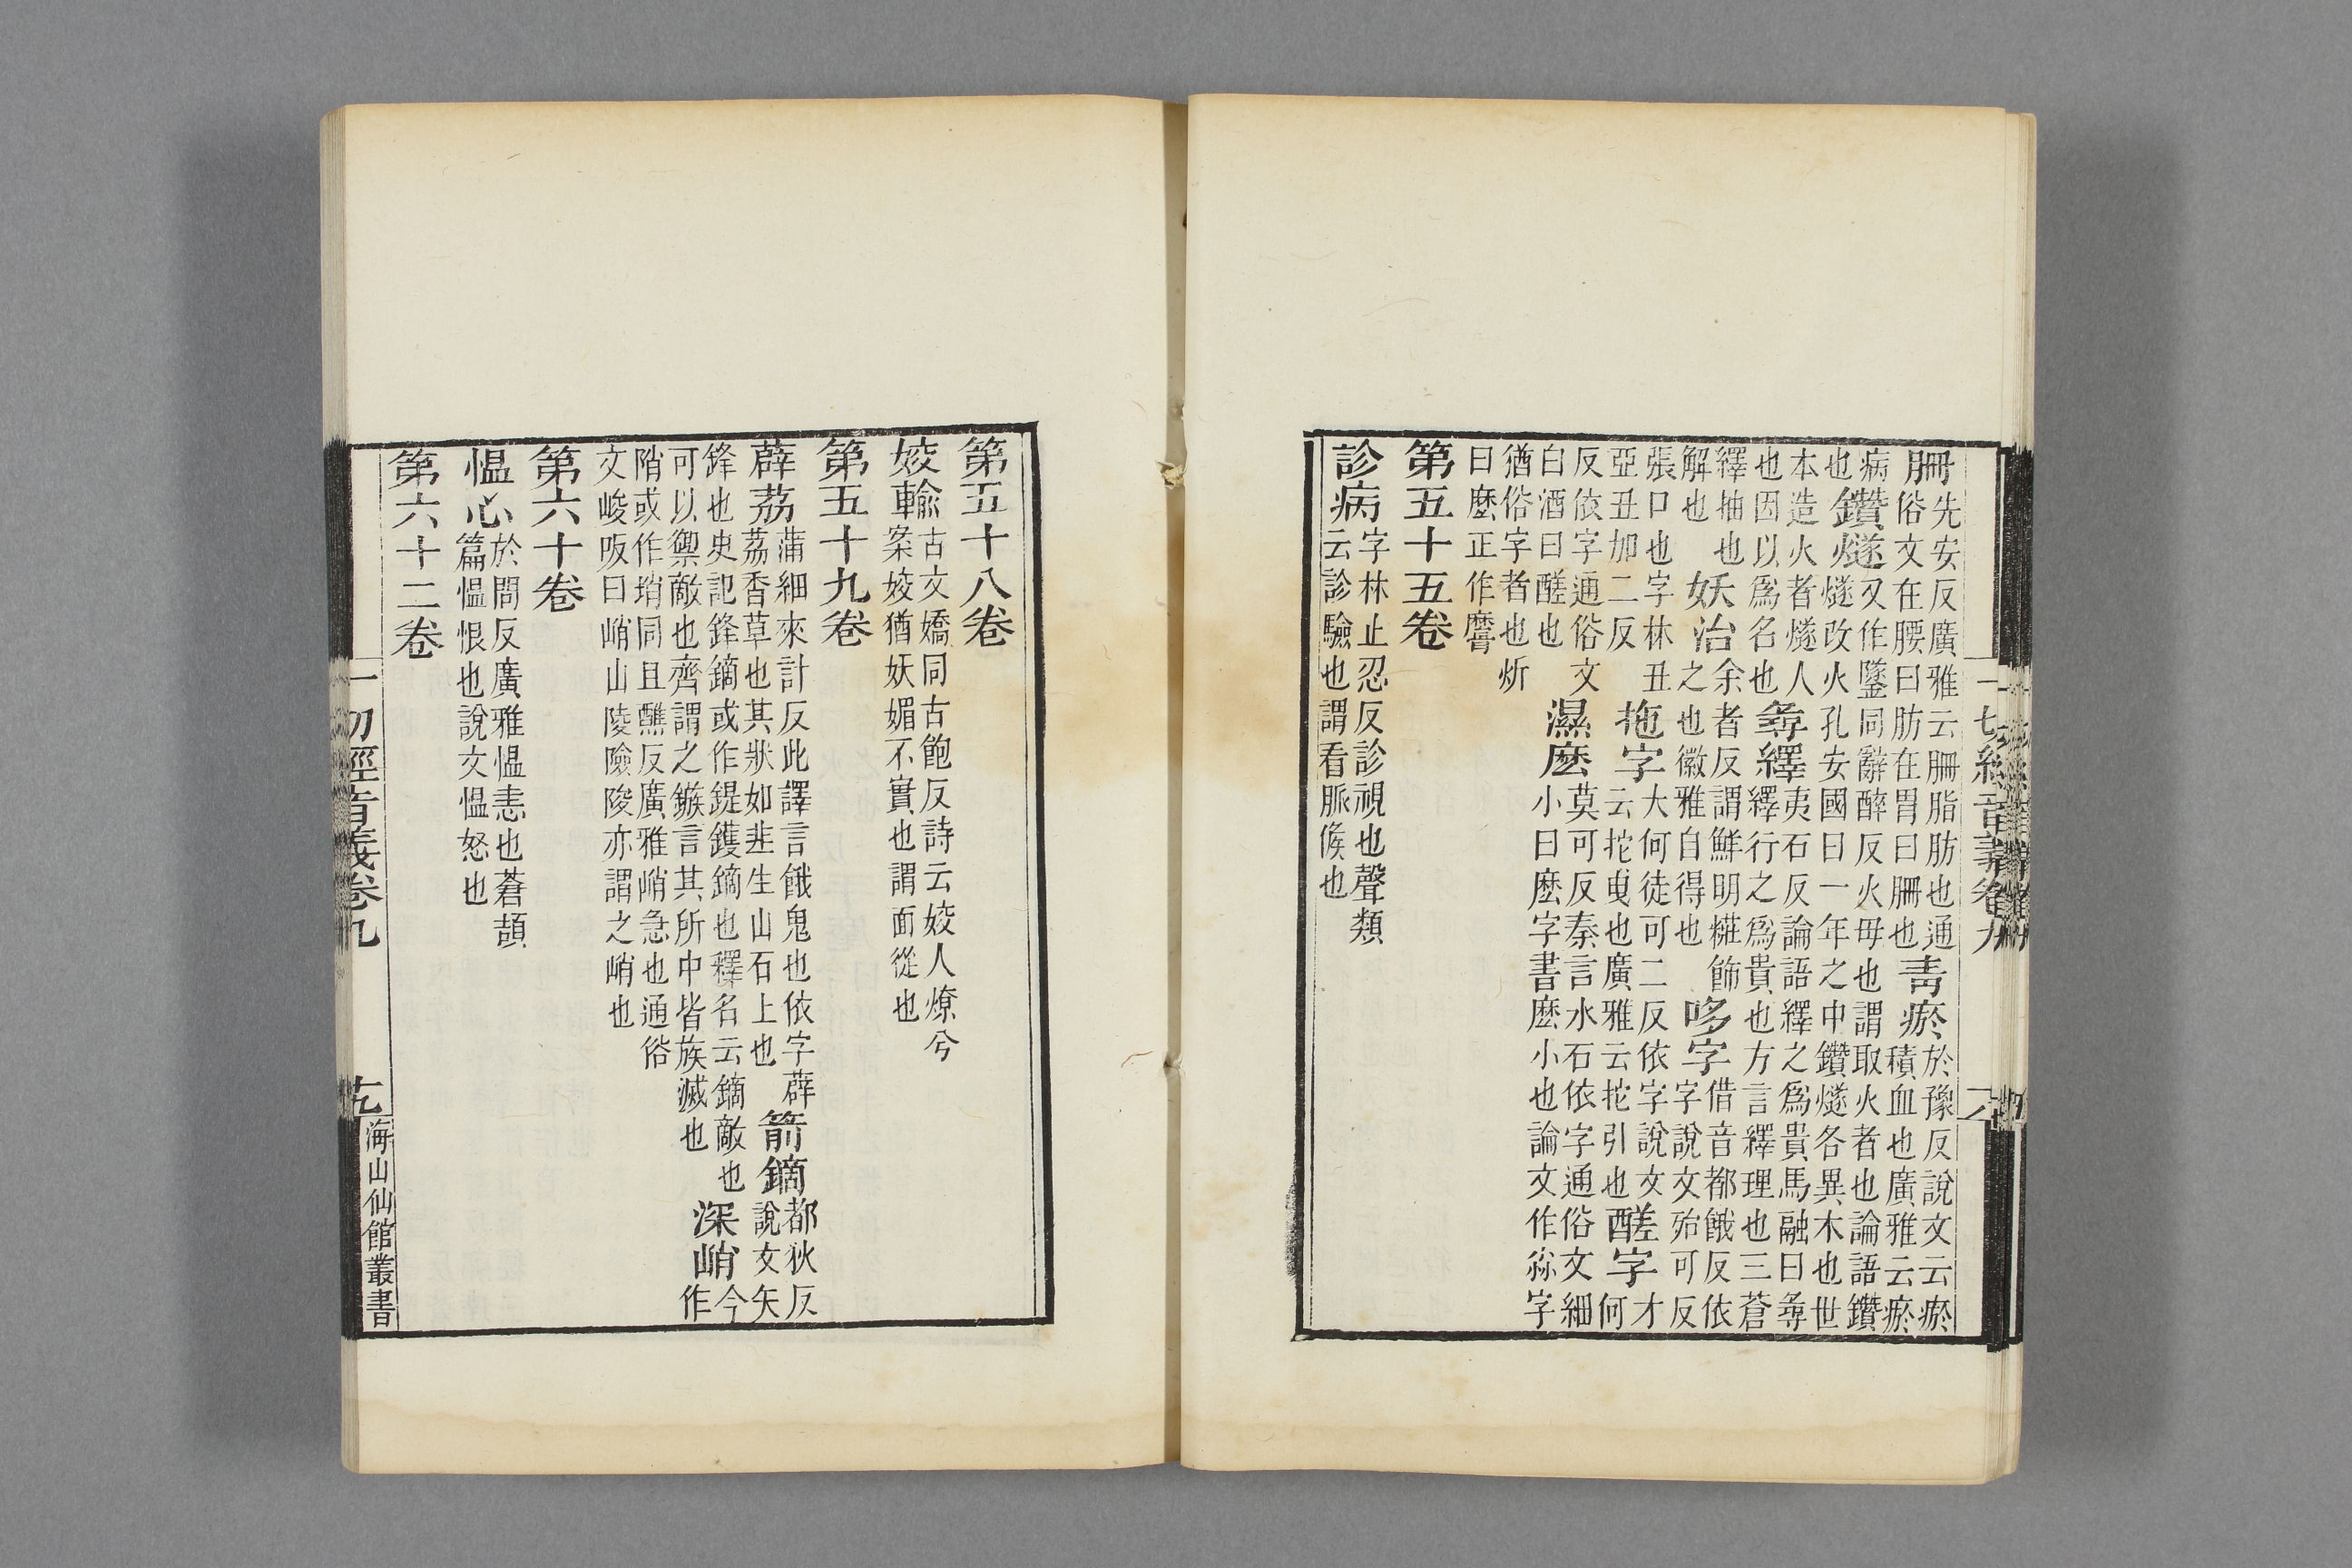 先安反廣雅云脂肪也通
俗文在腰曰肪在胃曰也
青瘀
於豫反說文云瘀
積血也廣雅云瘀
病
也
鑽燧
又作鐆同辭醉反火母也謂取火者也論語鑽
燧改火孔安國曰一年之中鑽燧各異木也世
本造火者燧人
也因以爲名也
尋繹
夷石反論語繹之爲貴馬融曰尋
繹行之爲貴也方言繹理也三蒼
繹抽也
解也
妖冶
余者反謂鮮明糚飾
之也徽雅自得也
哆字
借音都餓反依
字說文殆可反
張口也字林丑
亞丑加二反
拖字
大何徒可二反依字說文
云拕曳也廣雅云拕引也
醝字
才
何
反依字通俗文
白酒曰醝也
濕麽
莫可反秦言水石依字通俗文細
小曰麽字書麽小也論文作字
猶俗字者也炘
曰麽正作
第五十五卷
診病
字林止忍反診視也聲類
云診驗也謂看脈候也
第五十八卷
姣輸
古文嬌同古飽反詩云姣人燎兮
案姣猶妖媚不實也謂面從也
第五十九卷
薜荔
蒲細來計反此譯言餓鬼也依字薜
荔香草也其狀如韭生山石上也
箭鏑
都狄反
說文矢
鋒也史記鋒鏑或作鍉鑊鏑也釋名云鏑敵也
可以禦敵也齊謂之鏃言其所中皆族滅也
深峭
今
作
陗或作㟓同且醮反廣雅峭急也通俗
文峻阪曰峭山陵險陖亦謂之峭也
第六十卷
慍心
於問反廣雅慍恚也蒼頡
篇慍恨也說文慍怒也
第六十二卷
一切經音義卷九
海山仙館叢書